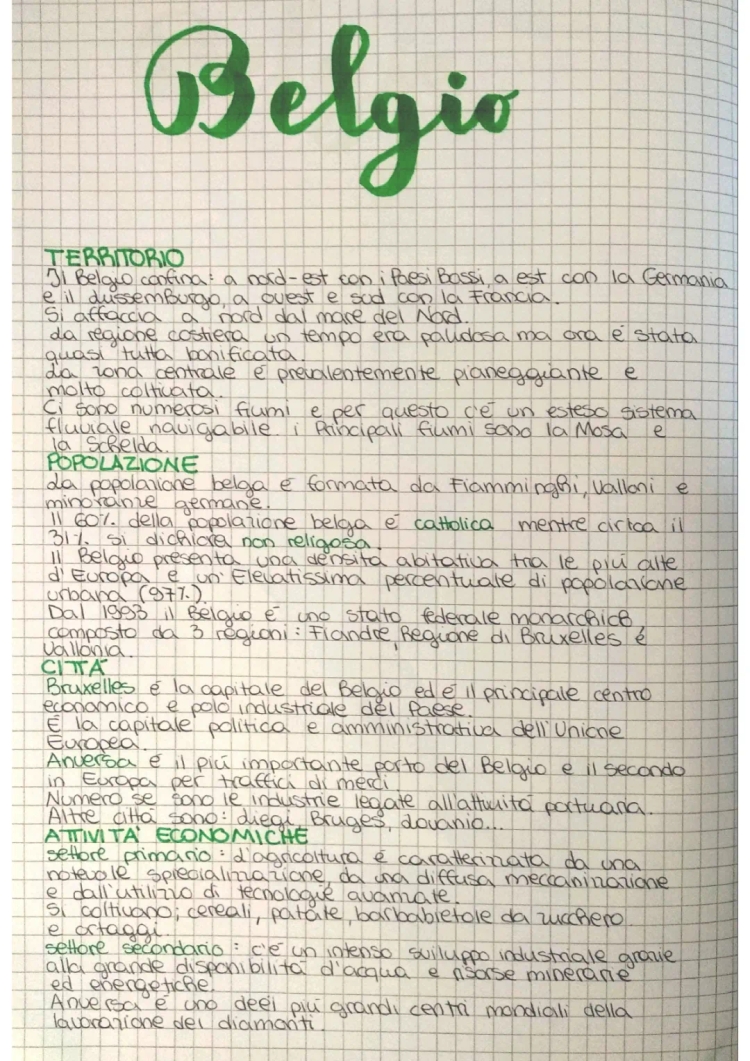 Belgio
TERRITORIO
Il Belgio confina: a nord-est con i Paesi Bassi, a est con la Germania
e il Lussemburgo, a ovest e sud con la Francia.
Si affaccia a nord dal mare del Nord.
La regione costiera un tempo era paludosa ma ora è stata
quasi tutta bonificata.
La zona centrale è prevalentemente pianeggiante e
molto coltivata.
Ci sono numerosi fiumi e per questo c'è un esteso sistema
fluviale navigabile i Principali fiumi sono la Mosa e
la Schelda.
POPOLAZIONE
La popolazione belga è formata da Fiamminghi, Valloni e
minoranze germane.
Il 60% della popolazione belga è cattolica mentre circa il
31% si dichiara non religosa.
Il Belgio presenta una densità abitativa tra le più alte
d'Europa e un' Elevatissima percentuale di popolazione
urbana (97%).
Dal 1993 il Belgio è uno stato federale monarchico,
composto da 3 regioni: Fiandre, Regione di Bruxelles e
Vallonia.
CITTÀ
Bruxelles è la capitale del Belgio ed è il principale centro
economico e polo industriale del Paese.
È la capitale politica e amministrativa dell'Unione
Europea.
Anversa è il più importante porto del Belgio e il secondo
in Europa per traffici di merci
Numero se sono le industrie legate all'attività portuana.
Altre città sono: Liegi, Bruges, Lovanio...
ATTIVITA' ECONOMICHE
settore primario: L'agricoltura è caratterizzata da una
notevole specializzazione, da una diffusa meccanizzazione
e dall'utilizzo di tecnologie avanzate.
Si coltivano; cereali, patate, barbabietole da zucchero
e ortaggi.
settore secondario: c'è un intenso sviluppo industriale grazie
alla grande disponibilità d'acqua e risorse minerarie
ed energetiche.
Anversa è uno degli più grandi centri mondiali della
lavorazione dei diamanti.